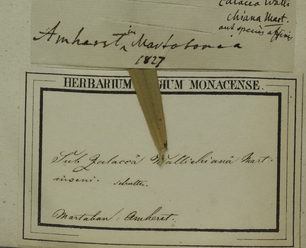 Wall
chiana Mart.
aut species affinis
Amherst in Martabania
1827
HERBARIUM REGIUM MONACENSE.
Sub Zalacca Wallichiana Mart
Martaban: Amherst.